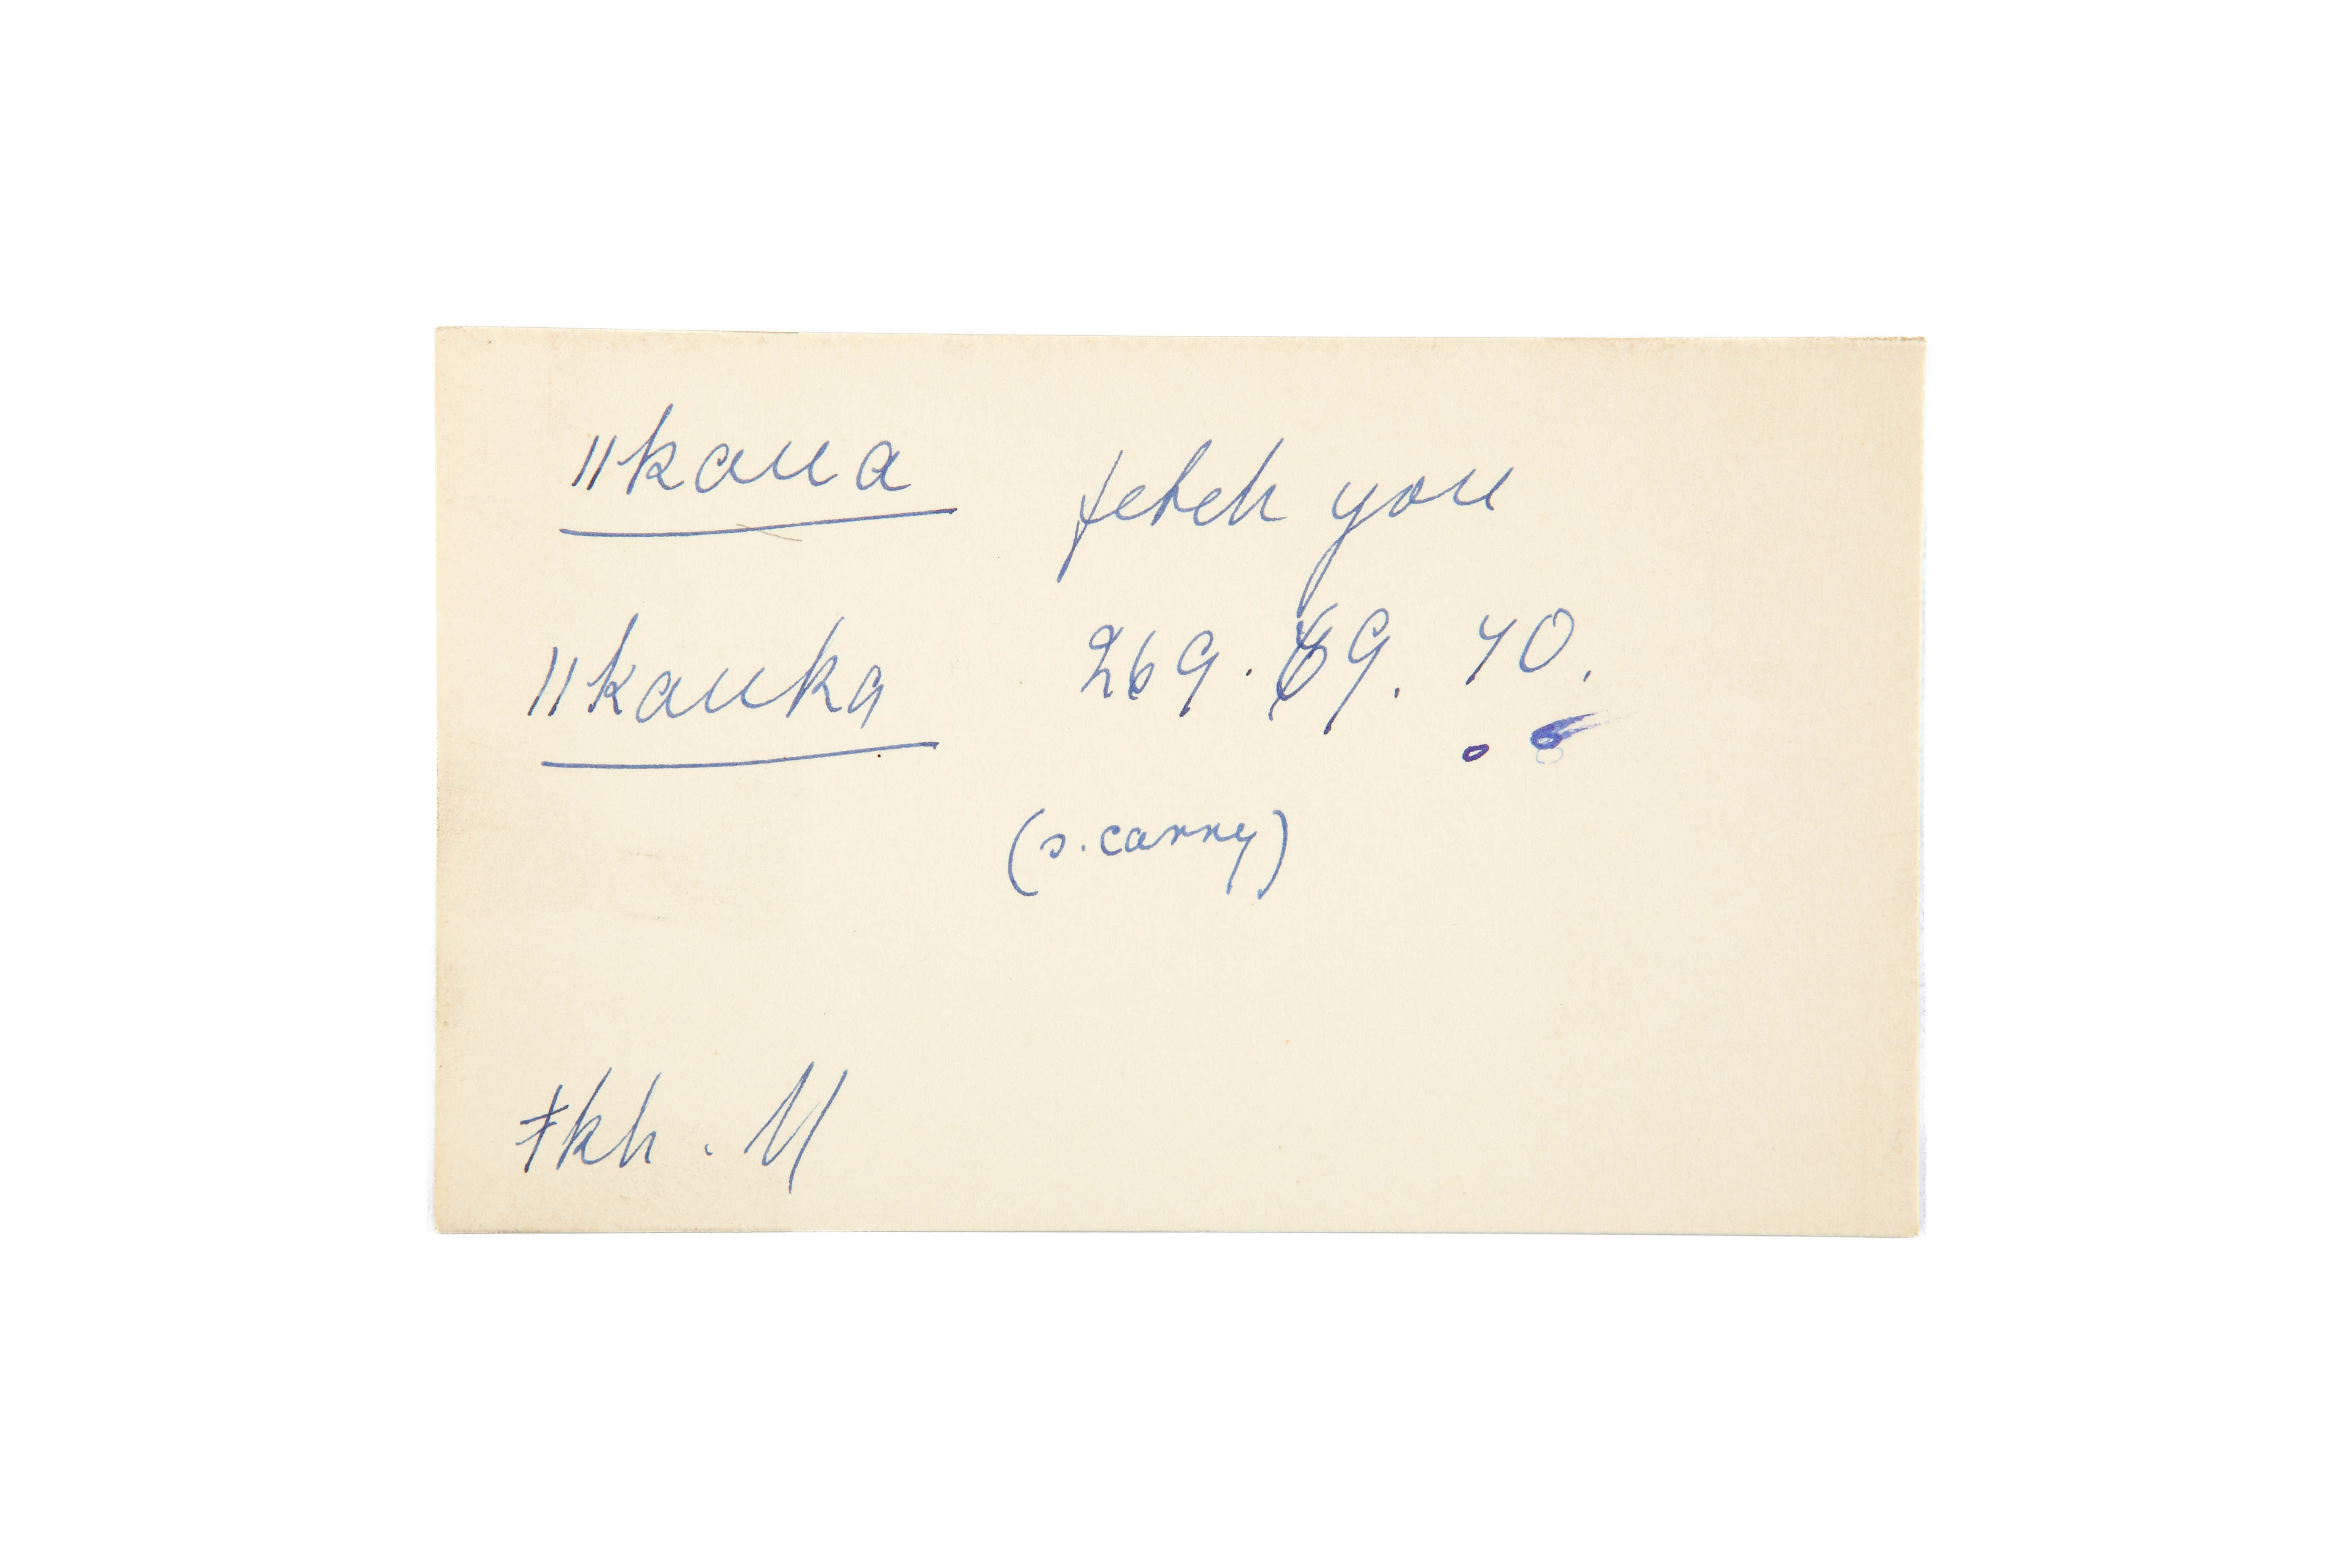 ǁkaua fetch you
ǁkauka 269. 69. 70.
(s. carry)
ǂkh. M